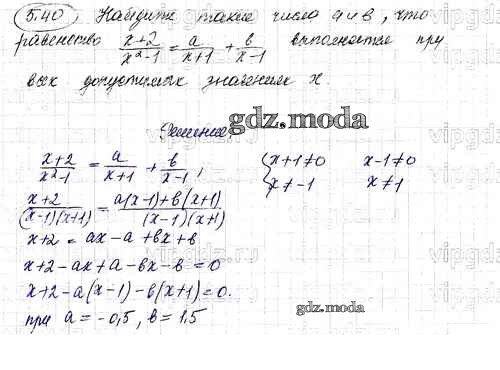 5.40 Найдите такие числа a и b, что
равенство (x+2)/(x²-1) = a/(x+1) + b/(x-1) выполняется при
всех допустимых значениях x.
Решение
gdz.moda
(x+2)/(x²-1) = a/(x+1) + b/(x-1), { x+1≠0 x-1≠0
x≠-1 x≠1
(x+2)/((x-1)(x+1)) = (a(x-1)+b(x+1))/((x-1)(x+1))
x+2 = ax-a+bx+b
x+2-ax+a-bx-b=0
x+2-a(x-1)-b(x+1)=0.
gdz.moda
при a=-0,5, b=1,5